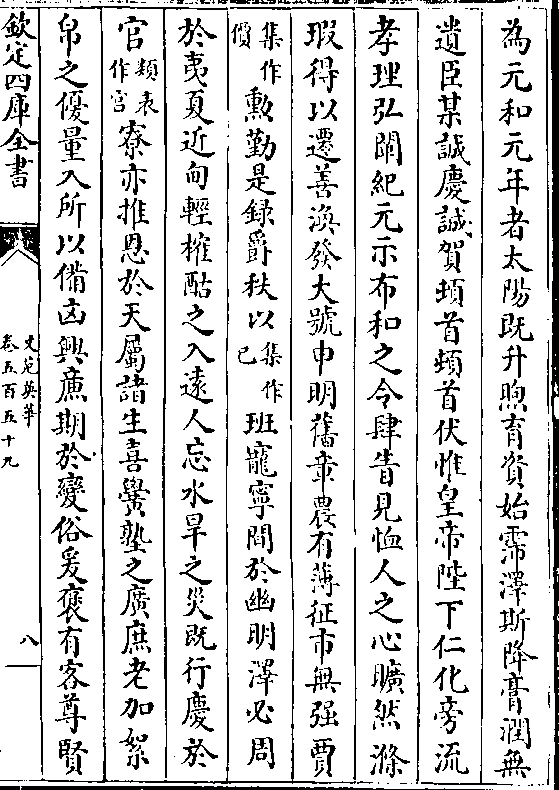 為元和元年者太陽既升煦育資始霈澤斯降膏潤無
遺臣某誠慶誠賀頓首頓首伏惟皇帝陛下仁化旁流
孝理弘闡紀元示布和之令肆眚見恤人之心曠然滌
瑕得以遷善渙發大號申明舊章農有薄征市無强賈
集作價勲勤是録爵秩以集作已班寵寧間於幽明澤必周
於夷夏近甸輕榷酤之入遠人忘水旱之災既行慶於
官類表作宫寮亦推恩於天屬諸生喜黌塾之廣庶老加絮
帛之優量入所以備凶興廉期於變俗爰褒有客尊賢
欽定四庫全書
文苑英華
卷五百五十九
八